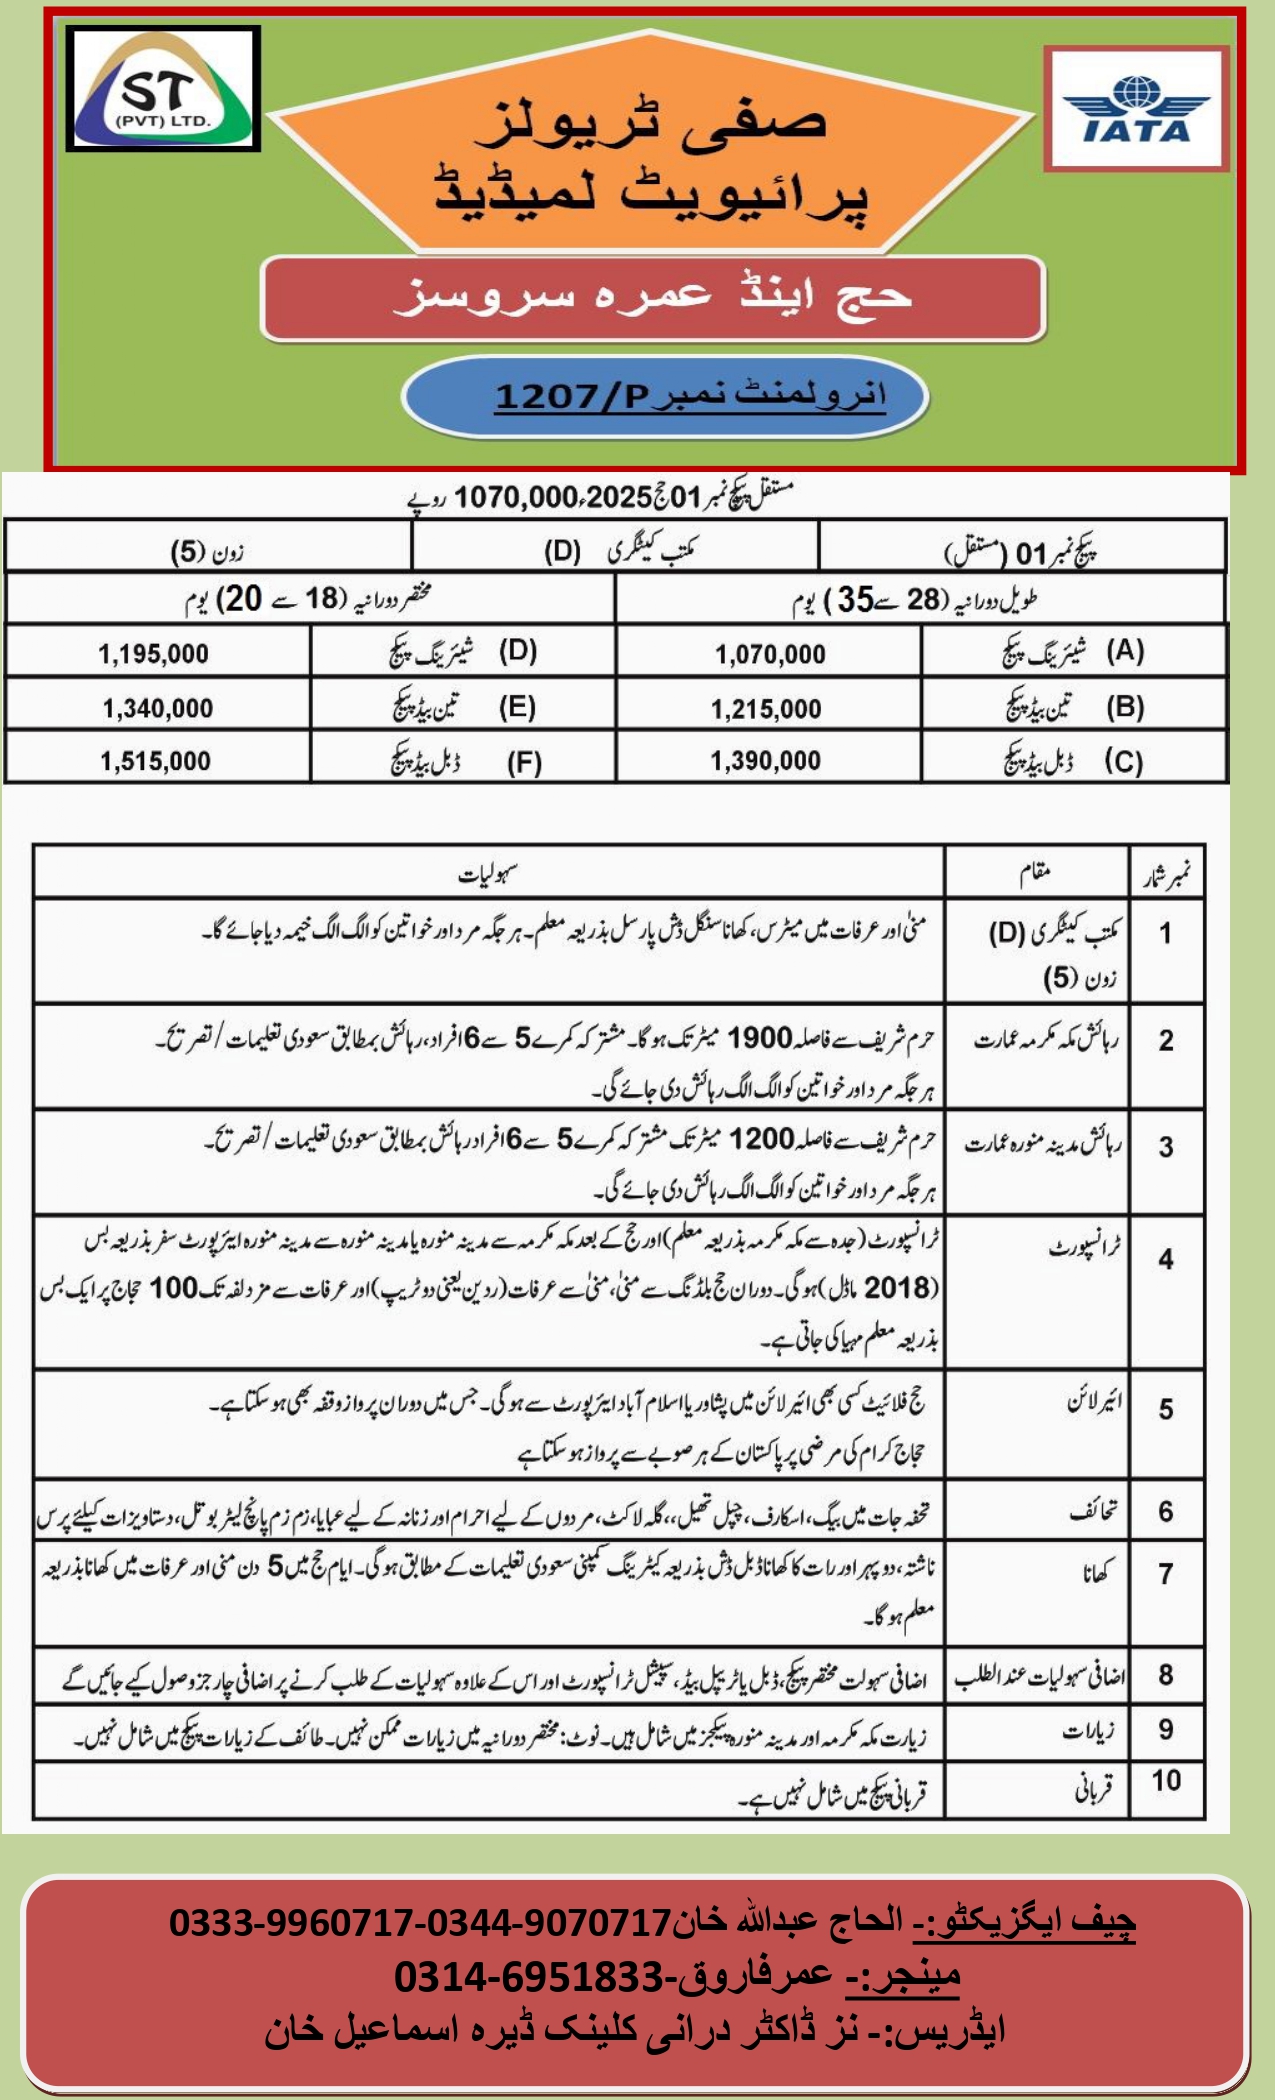 ST
(PVT) LTD.
IATA
صفی ٹریولز
پرائیویٹ لمیڈیڈ
حج اینڈ عمرہ سروسز
انرولمنٹ نمبر 1207/P
مستقل پیکج نمبر 01 حج 2025ء 1070,000 روپے
پیکج نمبر 01 (مستقل) مکتب کیٹگری (D) زون (5)
طویل دورانیہ (28 سے 35) یوم مختصر دورانیہ (18 سے 20) یوم
(A) شیئرنگ پیکج 1,070,000 (D) شیئرنگ پیکج 1,195,000
(B) تین بیڈ پیکج 1,215,000 (E) تین بیڈ پیکج 1,340,000
(C) ڈبل بیڈ پیکج 1,390,000 (F) ڈبل بیڈ پیکج 1,515,000
نمبر شمار مقام سہولیات
1 مکتب کیٹگری (D) منیٰ اور عرفات میں میٹرس، کھانا سنگل ڈش پارسل بذریعہ معلم۔ ہر جگہ مرد اور خواتین کو الگ الگ خیمہ دیا جائے گا۔
زون (5)
2 رہائش مکہ مکرمہ عمارت حرم شریف سے فاصلہ 1900 میٹر تک ہوگا۔ مشترکہ کمرے 5 سے 6 افراد، رہائش بمطابق سعودی تعلیمات / تصریح۔
ہر جگہ مرد اور خواتین کو الگ الگ رہائش دی جائے گی۔
3 رہائش مدینہ منورہ عمارت حرم شریف سے فاصلہ 1200 میٹر تک مشترکہ کمرے 5 سے 6 افراد رہائش بمطابق سعودی تعلیمات / تصریح۔
ہر جگہ مرد اور خواتین کو الگ الگ رہائش دی جائے گی۔
4 ٹرانسپورٹ ٹرانسپورٹ (جدہ سے مکہ مکرمہ بذریعہ معلم) اور حج کے بعد مکہ مکرمہ سے مدینہ منورہ یا مدینہ منورہ سے مدینہ منورہ ایئرپورٹ سفر بذریعہ بس
(2018 ماڈل) ہوگی۔ دوران حج بلڈنگ سے منیٰ، منیٰ سے عرفات (ردین یعنی دو ٹریپ) اور عرفات سے مزدلفہ تک 100 حجاج پر ایک بس
بذریعہ معلم مہیا کی جاتی ہے۔
5 ائیر لائن حج فلائیٹ کسی بھی ائیر لائن میں پشاور یا اسلام آباد ایئرپورٹ سے ہوگی۔ جس میں دوران پرواز وقفہ بھی ہو سکتا ہے۔
حجاج کرام کی مرضی پر پاکستان کے ہر صوبے سے پرواز ہو سکتا ہے
6 تحائف تحفہ جات میں بیگ، اسکارف، چپل تھیل،، گلہ لاکٹ، مردوں کے لیے احرام اور زنانہ کے لیے عبایا، زم زم پانچ لیٹر بوتل، دستاویزات کیلئے پرس
7 کھانا ناشتہ، دوپہر اور رات کا کھانا ڈبل ڈش بذریعہ کیٹرینگ کمپنی سعودی تعلیمات کے مطابق ہوگی۔ ایام حج میں 5 دن منی اور عرفات میں کھانا بذریعہ
معلم ہوگا۔
8 اضافی سہولیات عند الطلب اضافی سہولت مختصر پیکج، ڈبل یا ٹریپل بیڈ، سپیشل ٹرانسپورٹ اور اس کے علاوہ سہولیات کے طلب کرنے پر اضافی چارجز وصول کیے جائیں گے
9 زیارات زیارت مکہ مکرمہ اور مدینہ منورہ پیکجز میں شامل ہیں۔ نوٹ: مختصر دورانیہ میں زیارات ممکن نہیں۔ طائف کے زیارات پیکج میں شامل نہیں۔
10 قربانی قربانی پیکج میں شامل نہیں ہے۔
چیف ایگزیکٹو:- الحاج عبداللہ خان 0333-9960717-0344-9070717
مینجر:- عمرفاروق-0314-6951833
ایڈریس:- نز ڈاکٹر درانی کلینک ڈیرہ اسماعیل خان